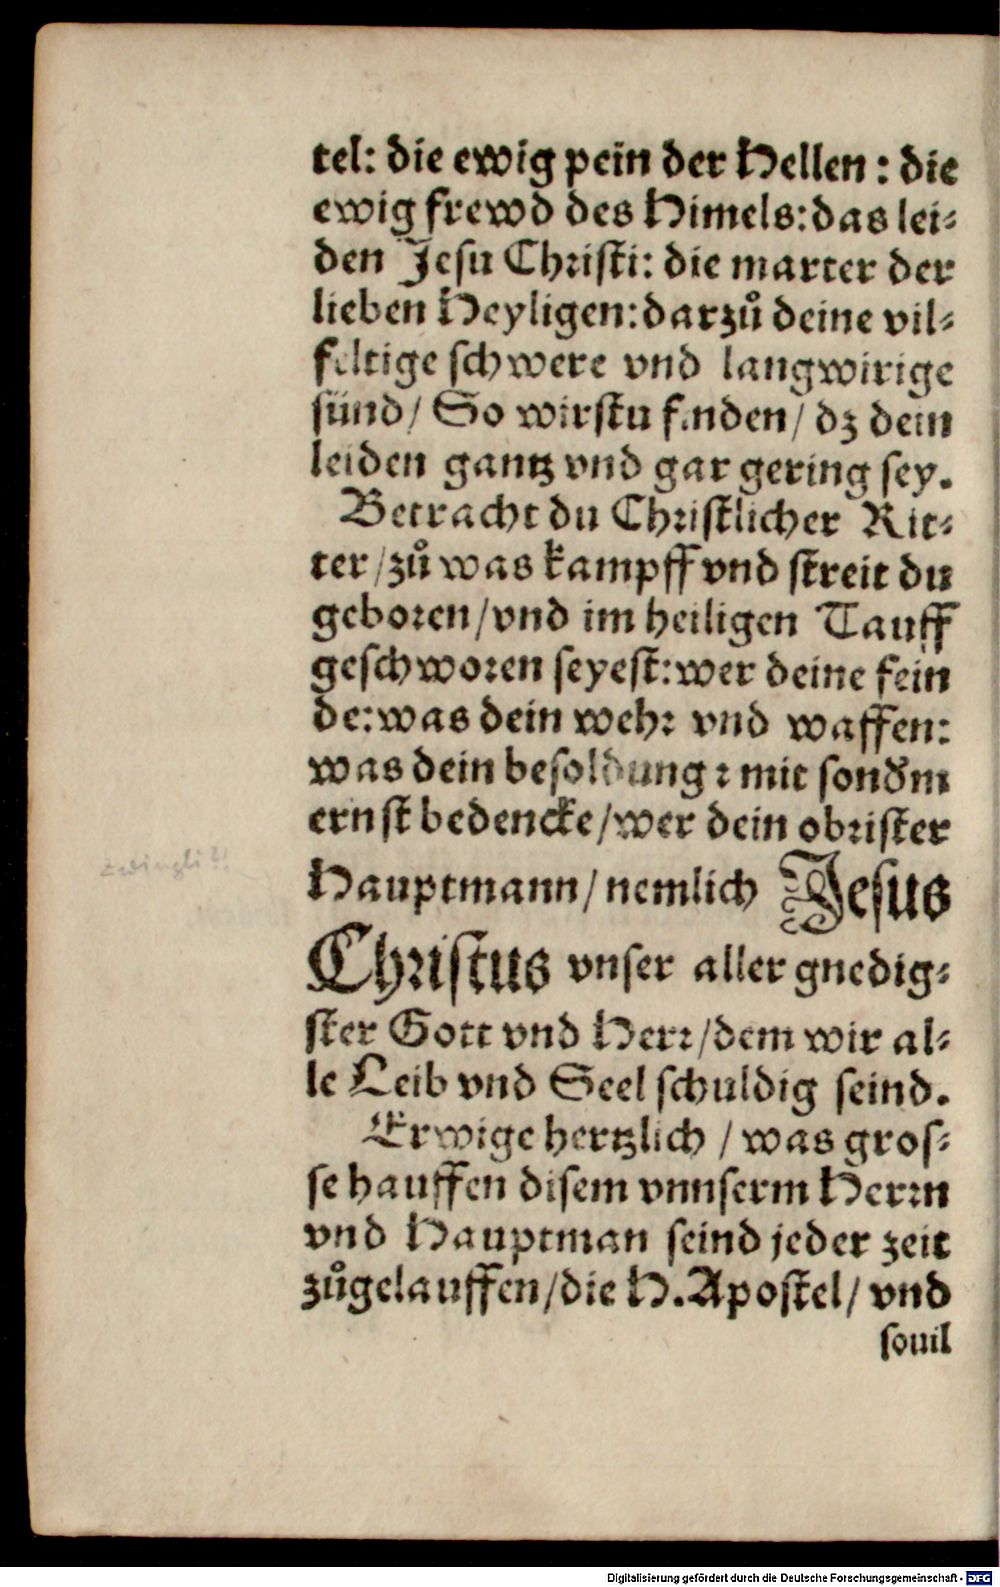 tel: die ewig pein der Hellen: die
ewig frewd des Himels: das lei-
den Jesu Christi: die marter der
lieben Heyligen: darzů deine vil-
feltige schwere vnd langwirige
sünd/ So wirstu finden/ dz dein
leiden gantz vnd gar gering sey.
Betracht du Christlicher Rit-
ter/ zů was kampff vnd streit du
geboren/ vnd im heiligen Tauff
geschworen seyest: wer deine fein
de: was dein wehr vnd waffen:
was dein besoldung: mit sondm
ernst bedencke/ wer dein obrister
Hauptmann/ nemlich Jesus
Christus vnser aller gnedig-
ster Gott vnd Herr/ dem wir al-
le Leib vnd Seel schuldig seind.
Erwige hertzlich/ was gros-
se hauffen disem vnnserm Herrn
vnd Hauptman seind jeder zeit
zůgelauffen/ die H. Apostel/ vnd
souil
zwingli!!
Digitalisierung gefördert durch die Deutsche Forschungsgemeinschaft - DFG